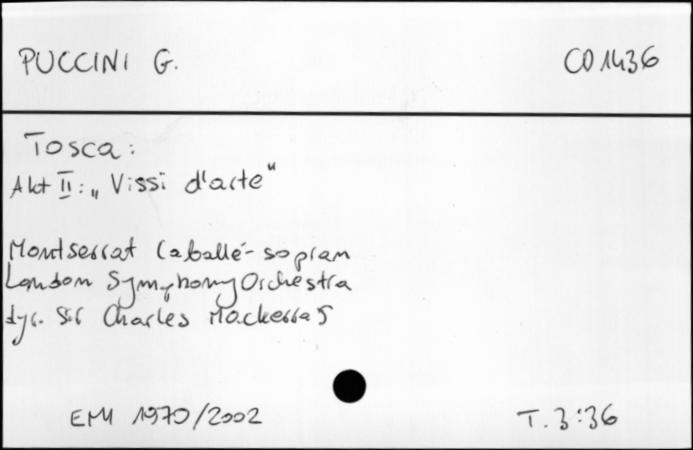 PUCCINI G.
CD 1436
Tosca:
Akt II: „Vissi d'arte"
Montserrat Caballé - sopran
London Symphony Orchestra
dyr. Sir Charles Mackerras
EMI 1970/2002
T. 3:36